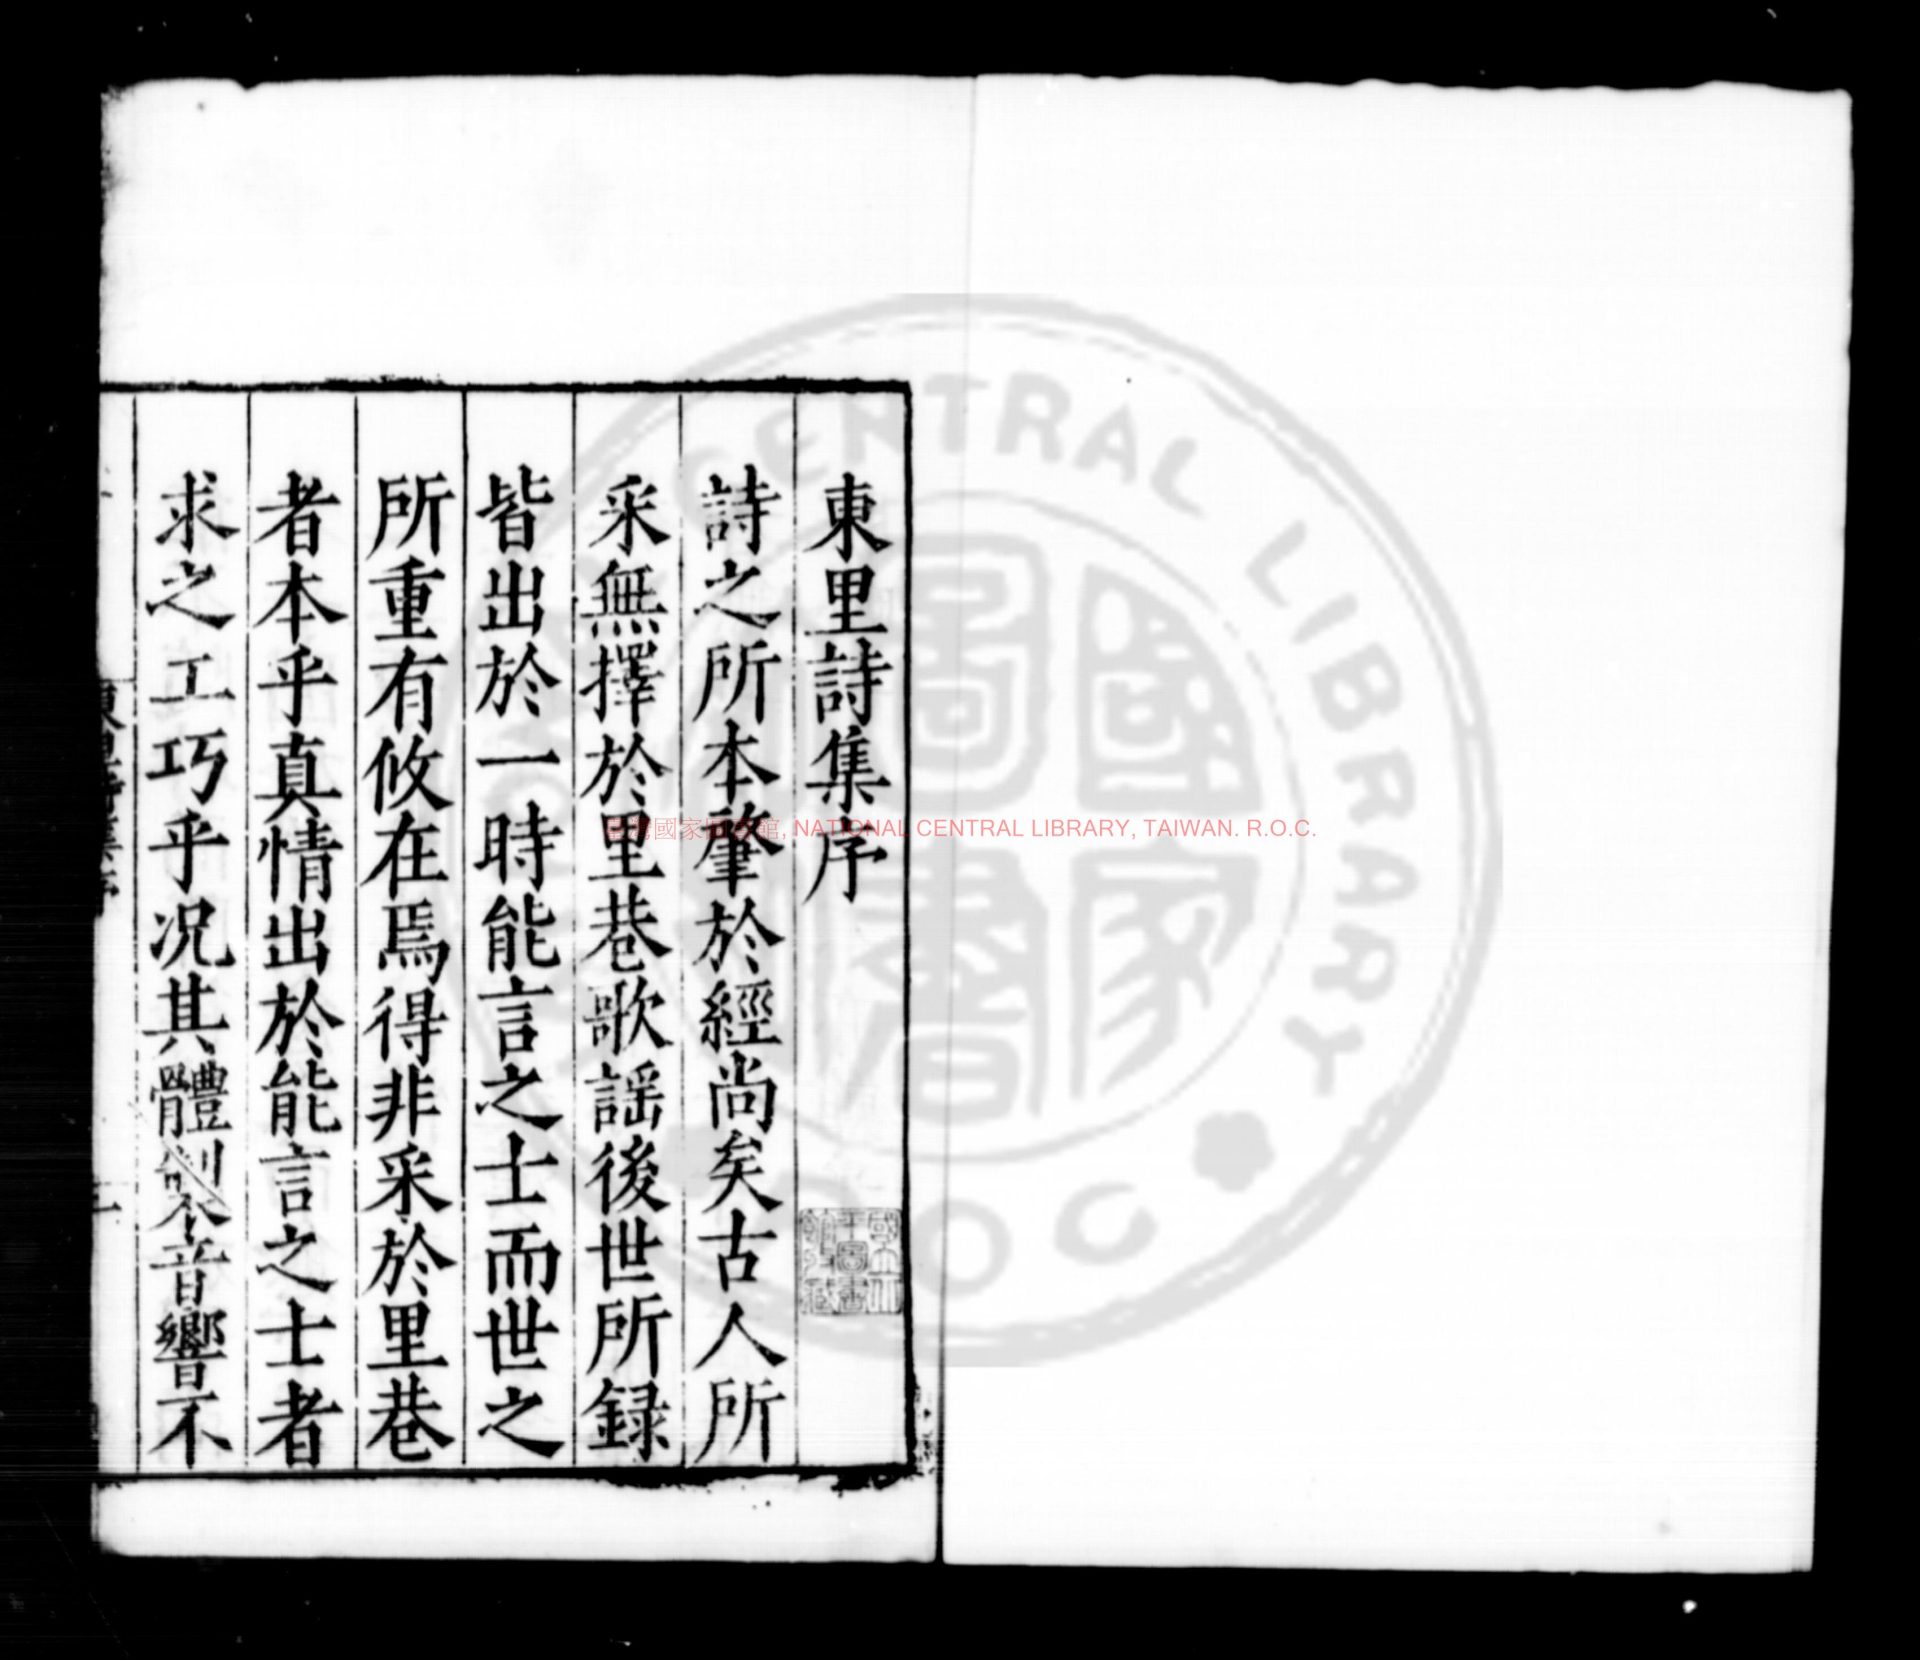 東里詩集序
詩之所本肇於經尚矣古人所
采無擇於里巷歌謡後世所録
皆出於一時能言之士而世之
所重有攸在焉得非采於里巷
者本乎真情出於能言之士者
求之工巧乎况其體製音響不
東里詩集序
一
國立北平圖書館收藏
臺灣國家圖書館, NATIONAL CENTRAL LIBRARY, TAIWAN. R.O.C.
CENTRAL LIBRARY
國家圖書
R.O.C